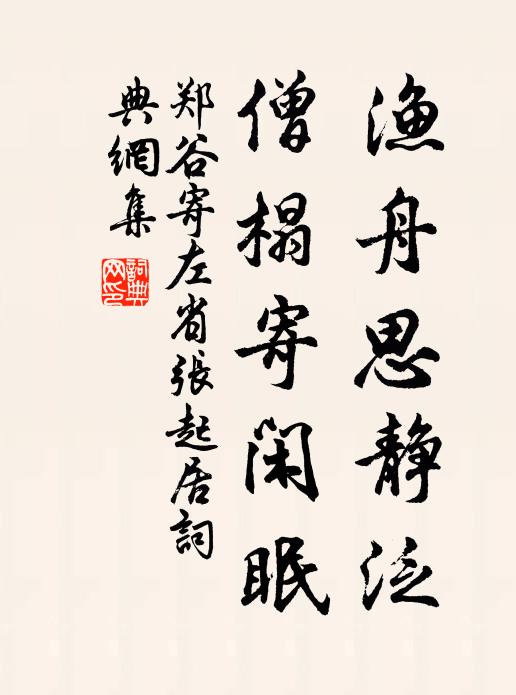 渔舟思静泛
僧榻寄闲眠
郑谷寄左省張起居詞
典網集
詞典网印